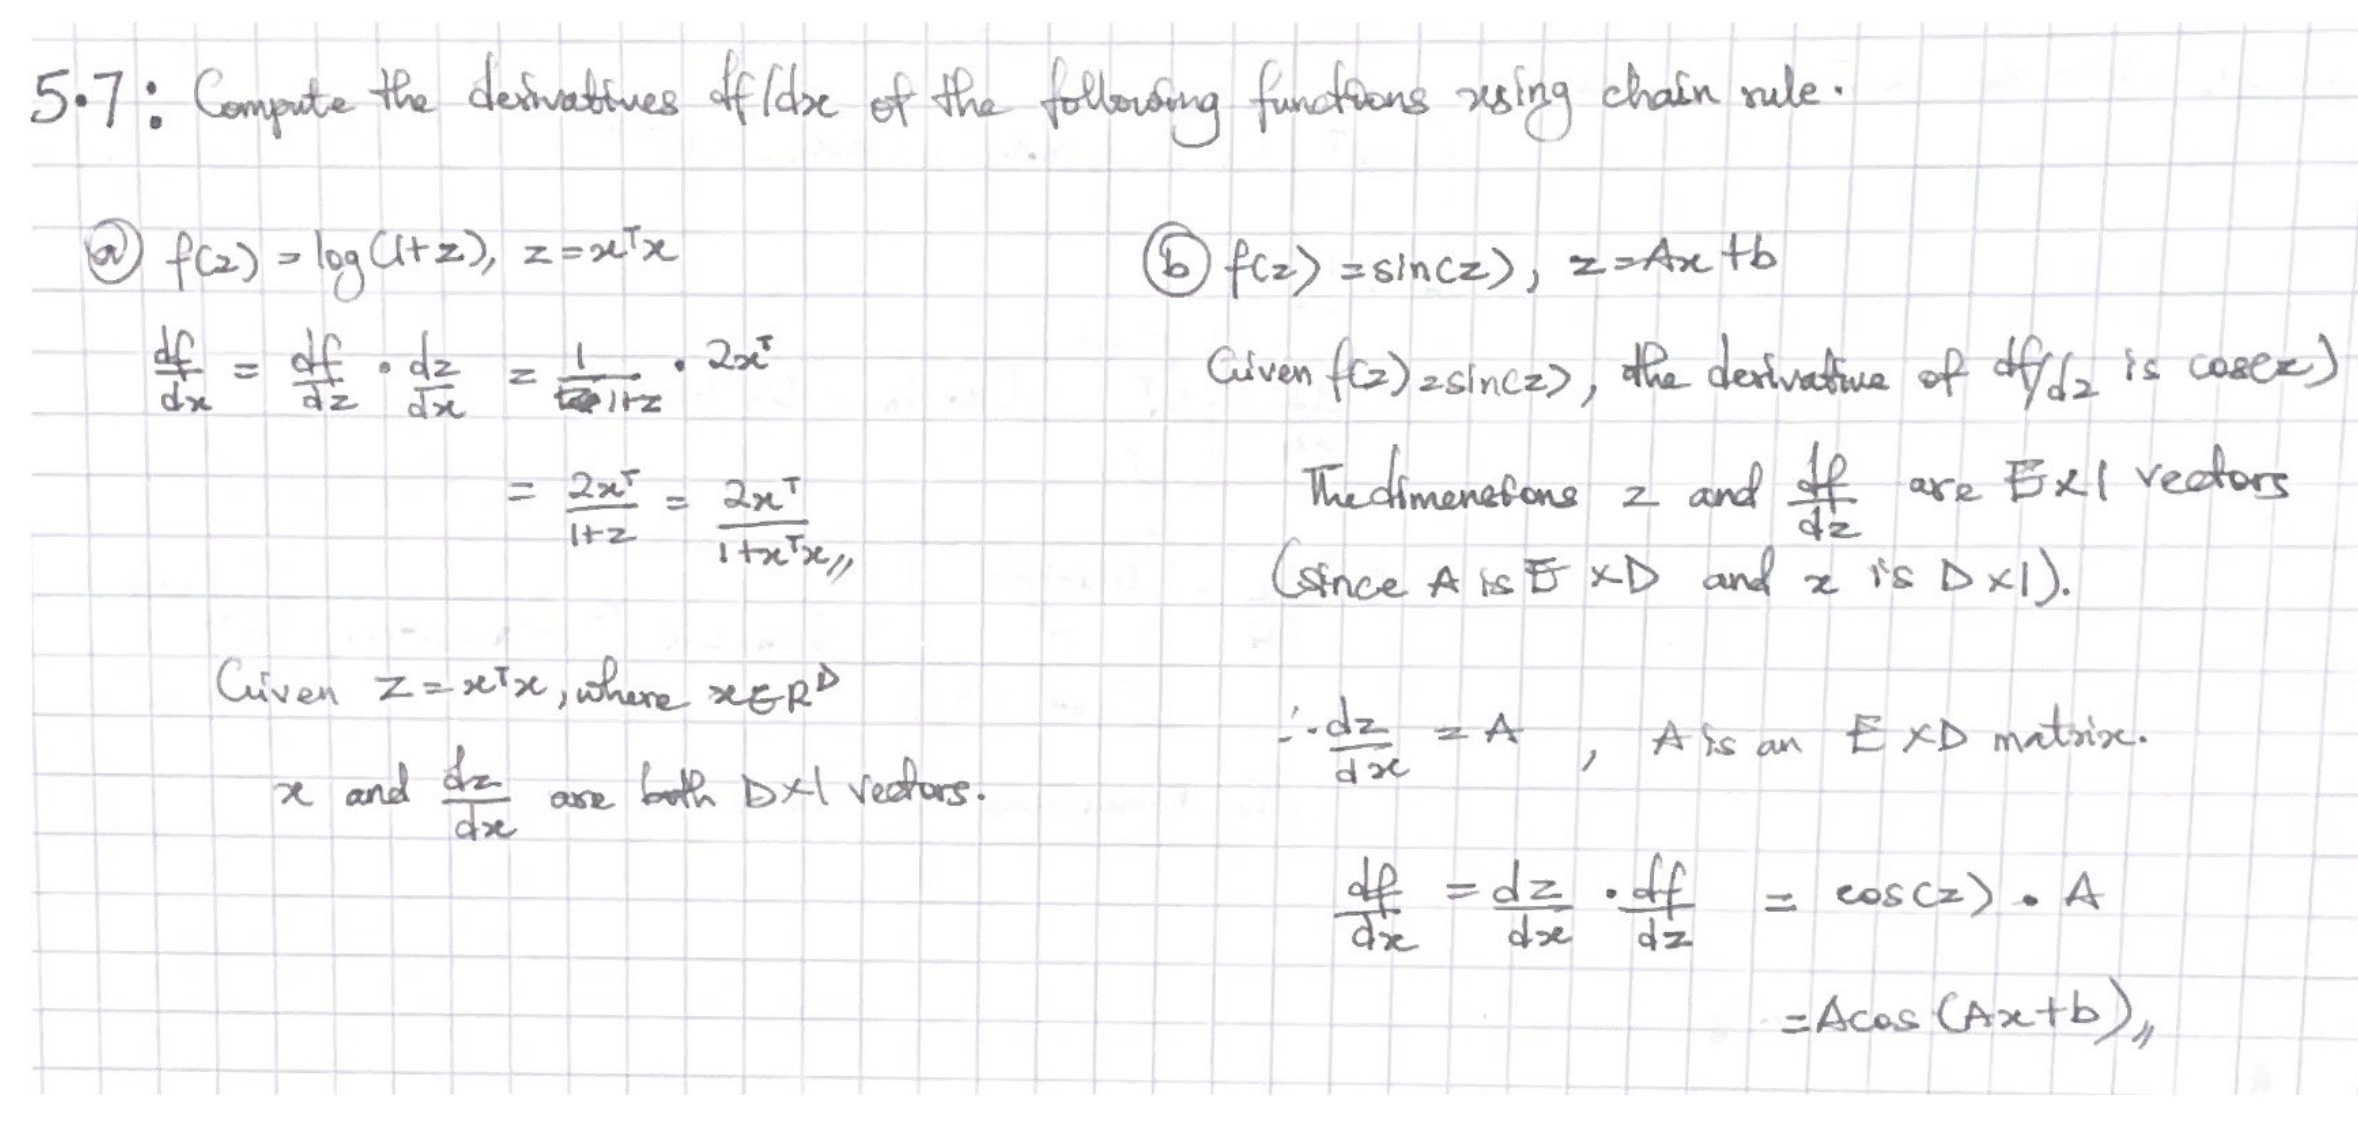 5.7: Compute the derivatives df/dx of the following functions using chain rule.
ⓐ f(z) = log(1+z), z = xᵀx
df/dx = df/dz · dz/dx = 1/(1+z) · 2xᵀ
= 2xᵀ/(1+z) = 2xᵀ/(1+xᵀx)//
Given z = xᵀx, where x∈R^D
x and dz/dx are both D×1 vectors.
ⓑ f(z) = sin(z), z = Ax + b
Given f(z) = sin(z), the derivative of df/dz is cos(z)
The dimensions z and df/dz are E×1 vectors
(since A is E×D and x is D×1).
∴ dz/dx = A , A is an E×D matrix.
df/dx = dz/dx · df/dz = cos(z) · A
= Acos(Ax+b)//